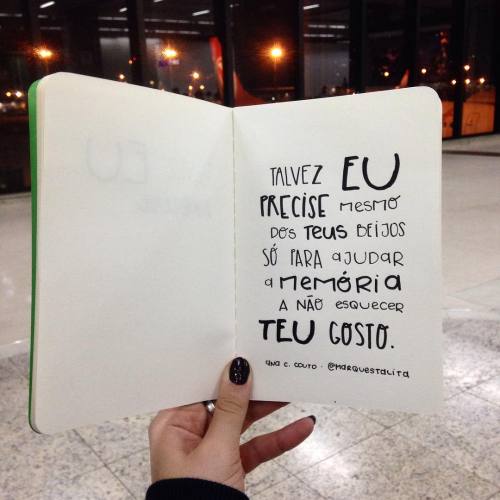 TALVEZ EU
PRECISE MESMO
DOS TEUS BEIJOS
SÓ PARA AJUDAR
A MEMÓRIA
A NÃO ESQUECER
TEU GOSTO.
ANA C. COUTO · @MARQUESTALITA